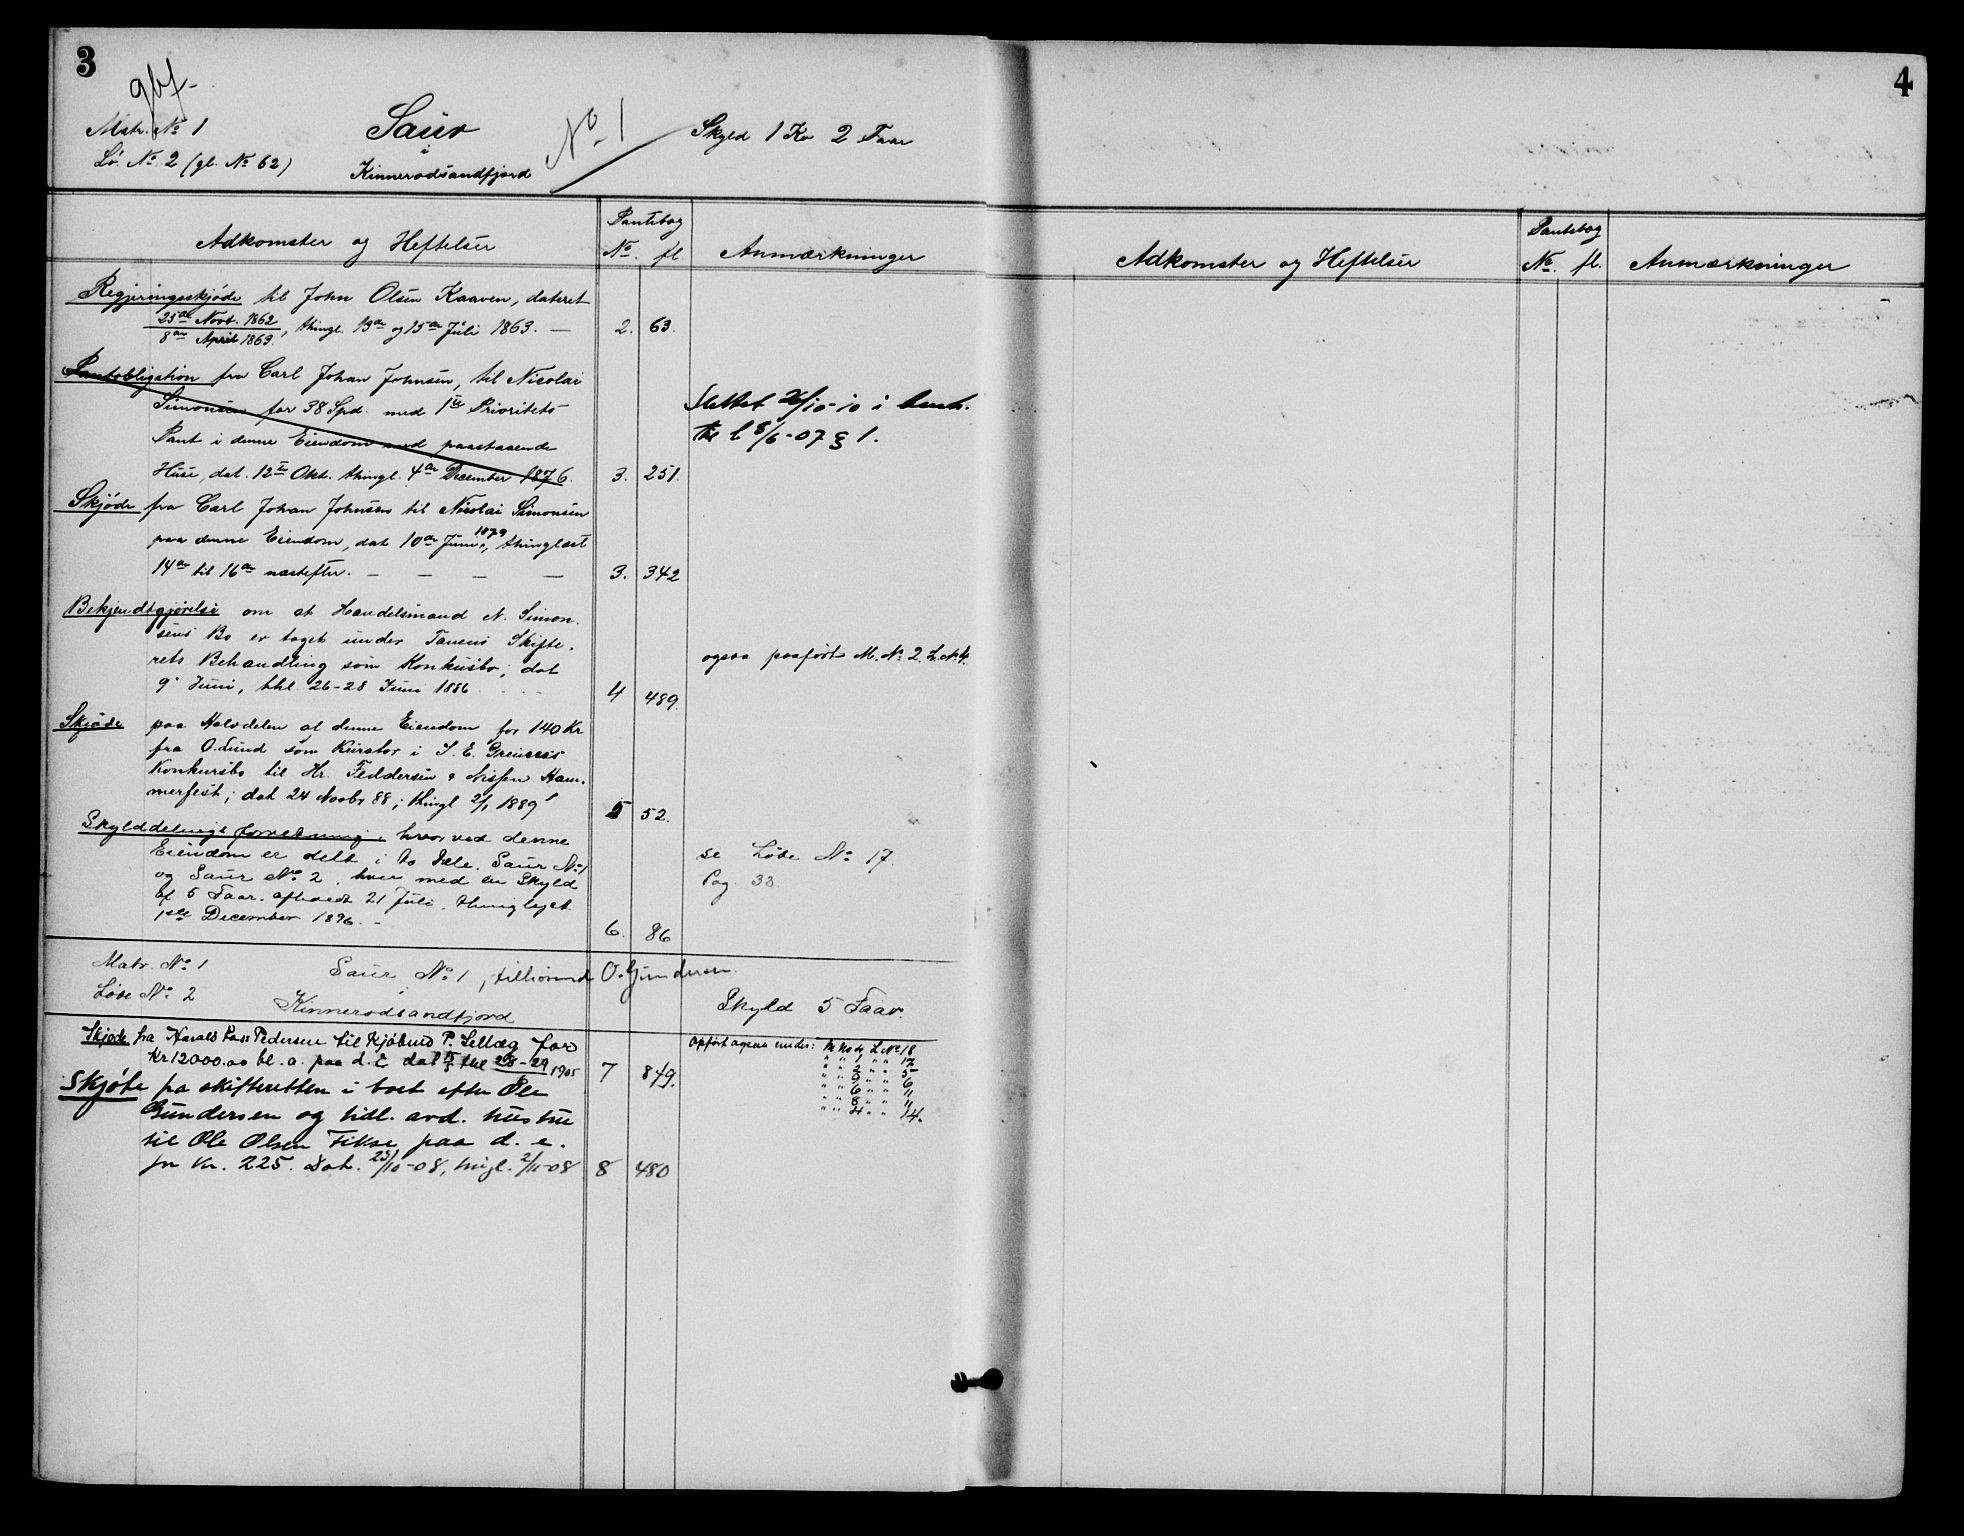 3
gbf.
Matr. No 1
Lö. No 2 (gl. No 62)
Saur
i
Kinnerodsandfjord
No 1
Skyld 1 Ko 2 Faar
Adkomster og Heftelser
Pantebog
No. fl
Anmærkninger
Regjeringsskjöde til John Olsen Kaaven, dateret
25de Novb. 1862
8de April 1863, thingl. 13de og 15de Juli 1863. — 2. 63.
Pantobligation fra Carl Johan Johnsen, til Nicolai
Simonsen for 38 Spd. med 1ste Prioritets
Pant i denne Eiendom med paastaaende
Huse, dat. 12te Okt. thingl. 4de December 1876. 3. 251.
Slettet 26/10-10 i henh.
til l 8/6-07 § 1.
Skjöde fra Carl Johan Johnsen til Nicolai Simonsen
paa denne Eiendom, dat 10de Juni 1879, thinglæst
14de til 16de næstefter. — — — — 3. 342
Bekjendtgjörelse om at Handelsmand N. Simon-
sens Bo er taget under Tanens Skifte-
rets Behandling som Konkusbo, dat
9. Juni, thl 26-28 Juni 1886 4 489.
ogsaa paaført M. No 2 L. No 4.
Skjöde paa Halvdelen af denne Eiendom for 140 Kr
fra O. Lund som Kurator i
Konkursbo til Hr. Feddersen & Nissen Ham-
merfest; dat 24 Novbr 88; thingl 2/1 1889 5 52.
Skylddelingsforretning, hvorved denne
Eiendom er delt i to Dele. Saur No 1
og Saur No 2, hver med en Skyld
af 5 Faar. afholdt 21 Juli. thinglyst
1ste December 1896. — 6. 86
se Løbe No 17.
Pag. 33.
Matr. No 1
Løbe No 2
Saur No 1, tilhörende O. Gundersen.
i
Kinnerodsandfjord
Skyld 5 Faar.
Skjøde fra Harald Pedersen til Kjöbmd P. for
Kr 12000.00 bl. a. paa d. E dat thl 28-29 1905 7 849.
Opført ogsaa under: M No 4 L No 18
" " 1 " " 17
" " 2 " " 5
" " 5 " " 6
" " 6 " " 11
" " 8 " " 11
" " 4 " " 14.
Skjöte fra skifteretten i boet efter Ole
Gundersen og tidl. avd. hustru
til Ole Olsen Fikse paa d. e.
for kr. 225. Dat. 23/10-08, tingl. 2/11-08 8 480
4
Adkomster og Heftelser
Pantebog
No. fl.
Anmærkninger